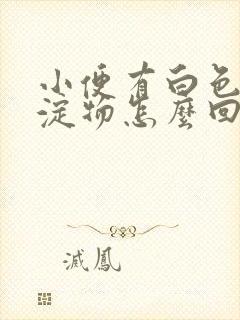 小便有白色
淀物怎麼回
滅鳳